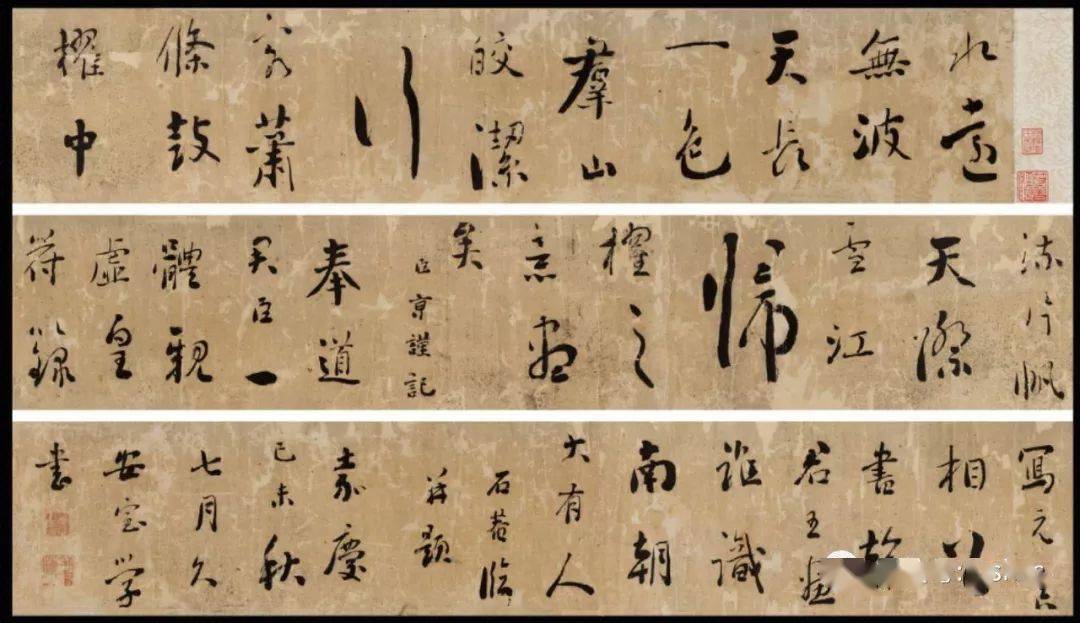 水遠
無波
天長
一色
羣山
皎潔
行
客蕭
條鼓
櫂中
流片帆
天際
雪江
歸
櫂之
意盡
矣
臣京謹記
奉道
君臣一
體親
虛皇
符籙
寫元
相公
書翰
君王畫
誰識
南朝
大有人
石菴臨
并題
嘉慶
己未秋
七月久
安室學
書